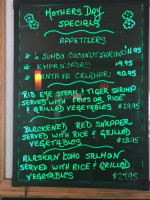 MOTHERS DAY
SPECIALS
APPETIZERS
6 JUMBO COCONUT SHRIMP 11.95
4 EMPANADAS 9.95
FE CALAMARI 10.95
RIB EYE STEAK & TIGER SHRIMP
SERVED WITH FRIES OR RICE
& GRILLED VEGETABLES $29.95
BLACKENED RED SNAPPER
SERVED WITH RICE & GRILLED
VEGETABLES $28.95
ALASKAN COHO SALMON
SERVED WITH RICE & GRILLED
VEGETABLES $25.95